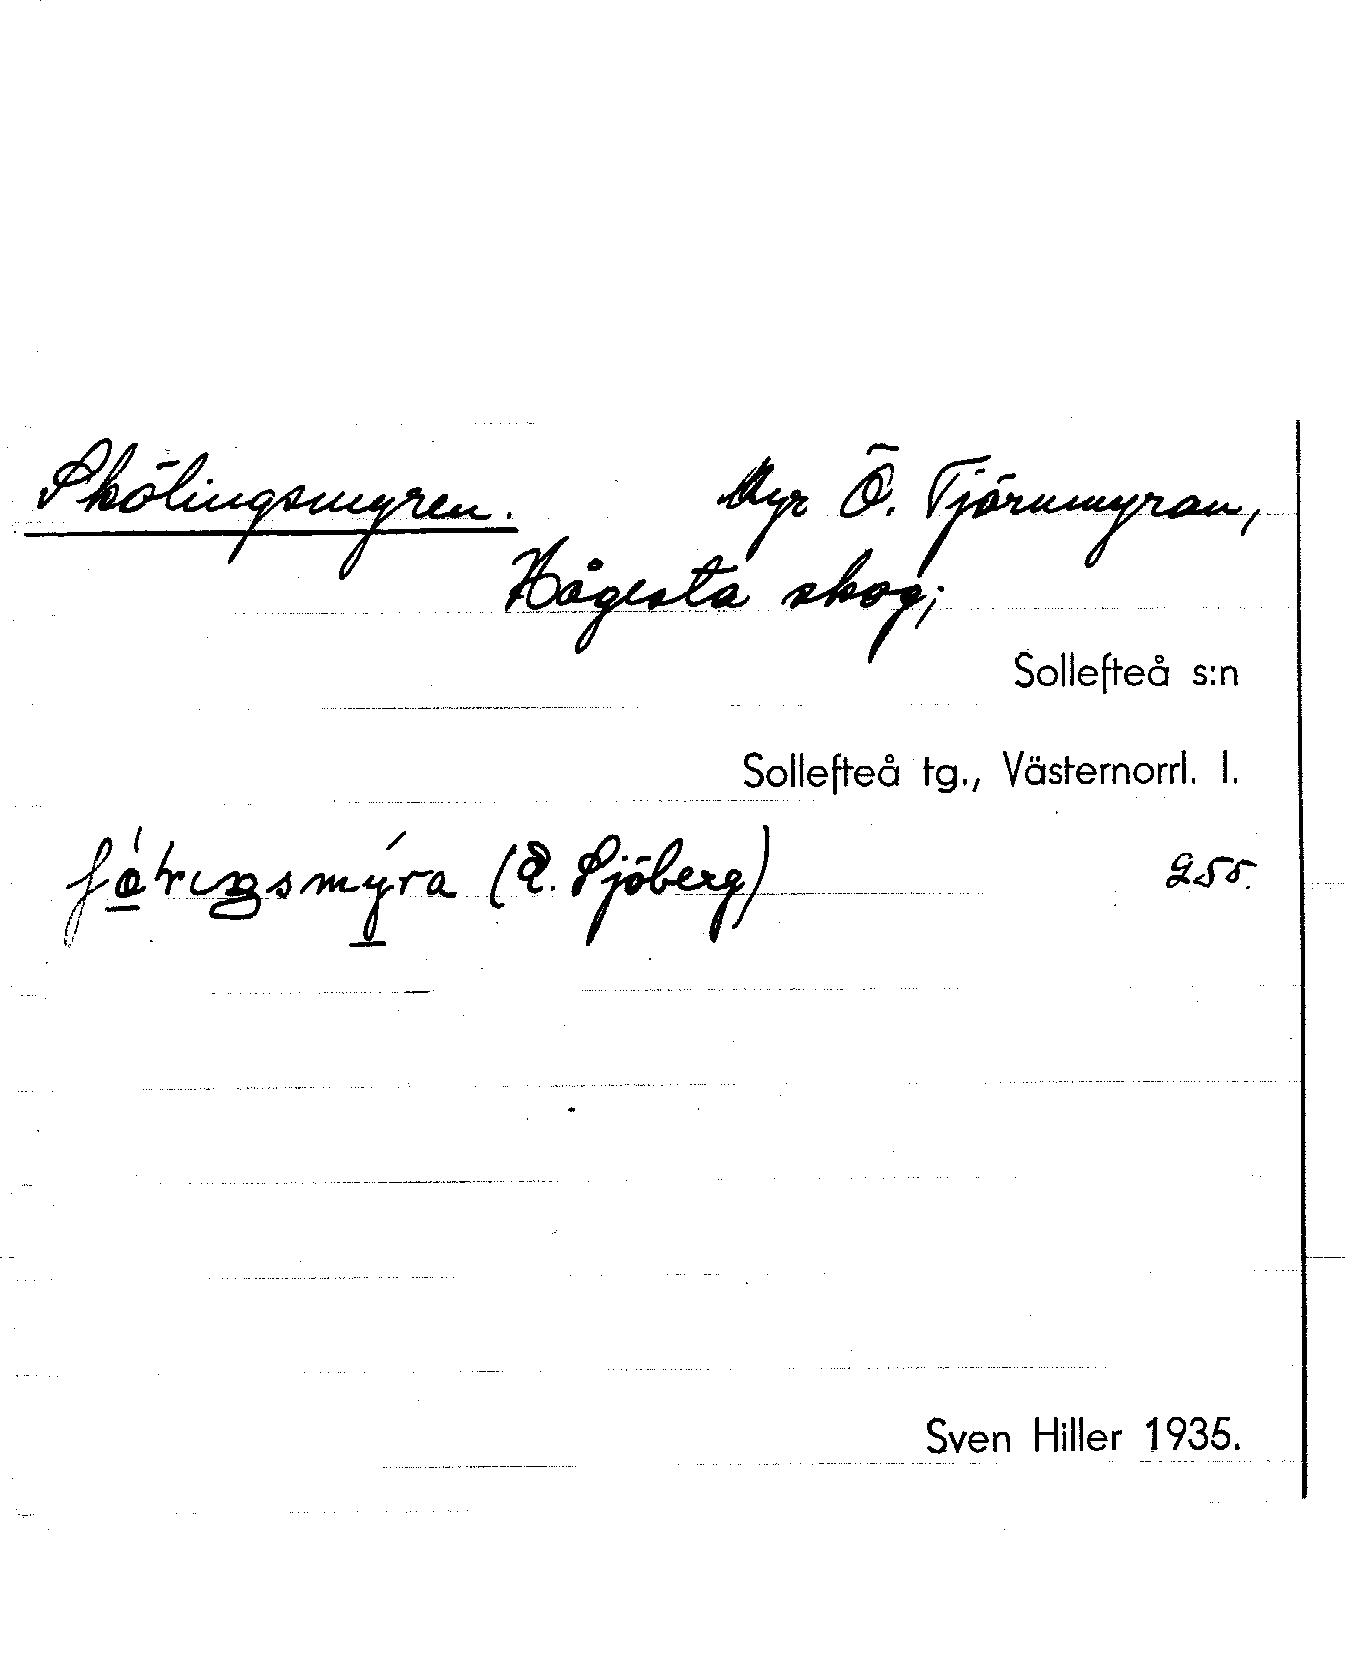 Skölingsmyren. Myr Ö. Tjörnmyran,
Hågesta skog;
Sollefteå s:n
Sollefteå tg., Västernorrl. l.
(E. Sjöberg) 255.
Sven Hiller 1935.